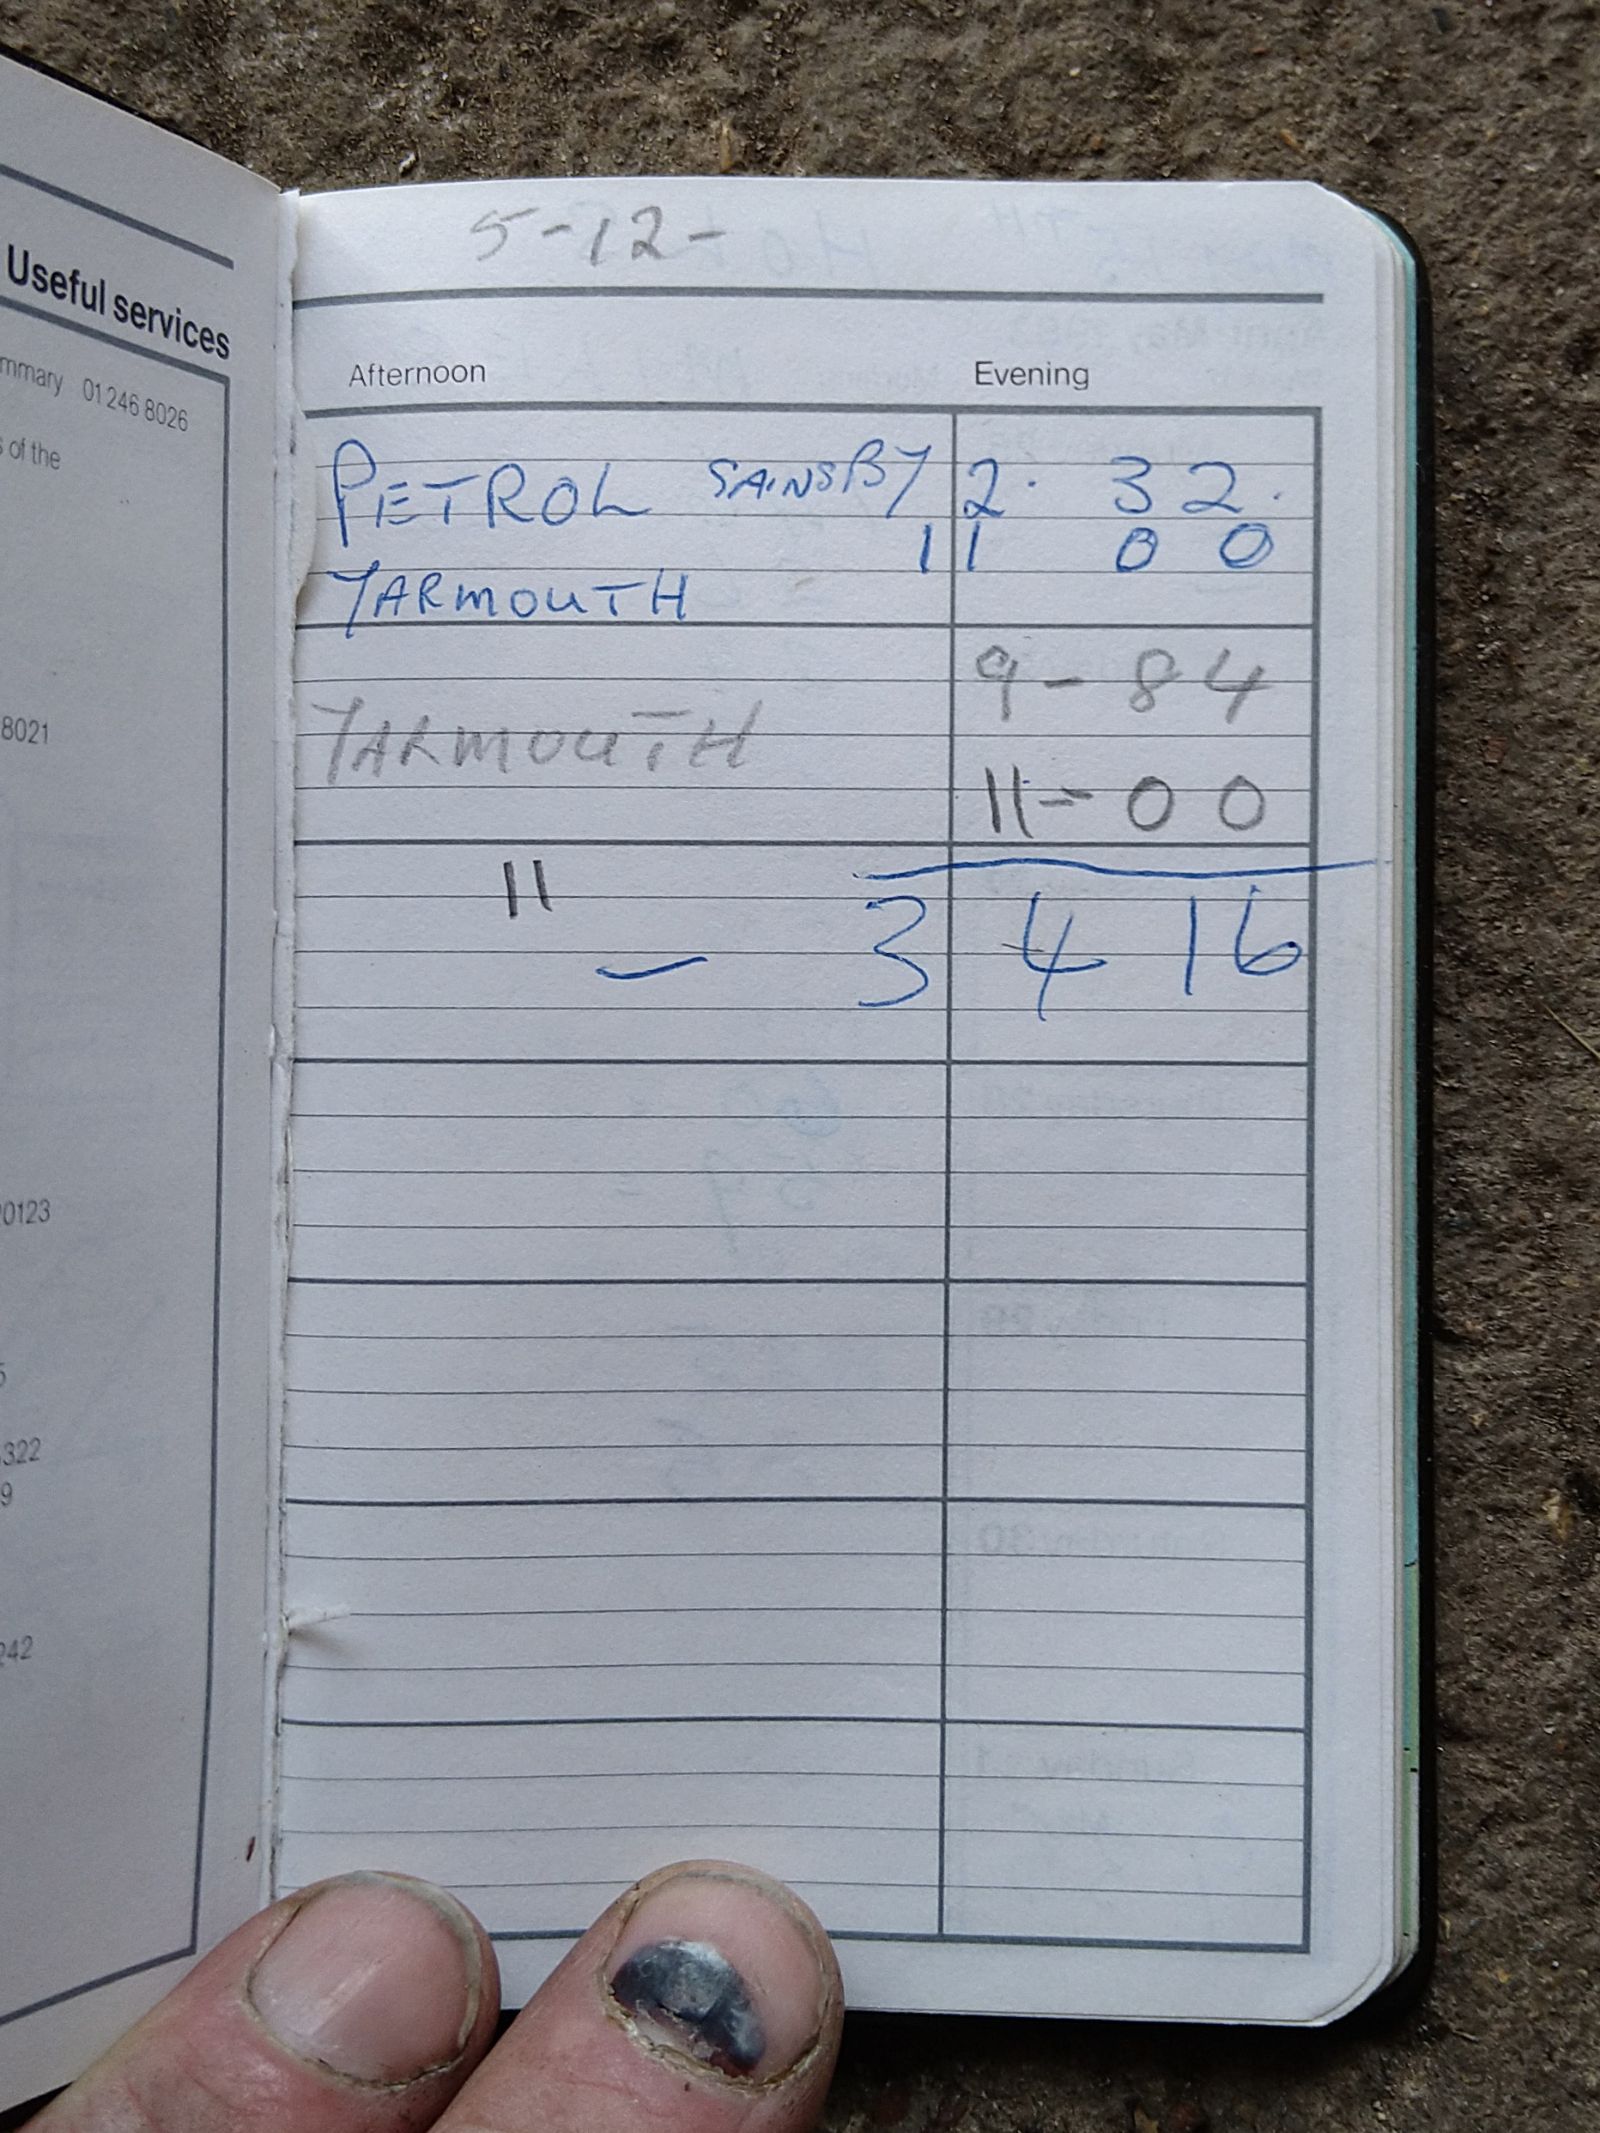 Useful services
mmary 01 246 8026
s of the
8021
0123
322
9
242
5-12-
Afternoon Evening
PETROL SAINSBY 2. 32.
11 00
YARMOUTH
9-84
YARMOUTH
11-00
11
- 34 16